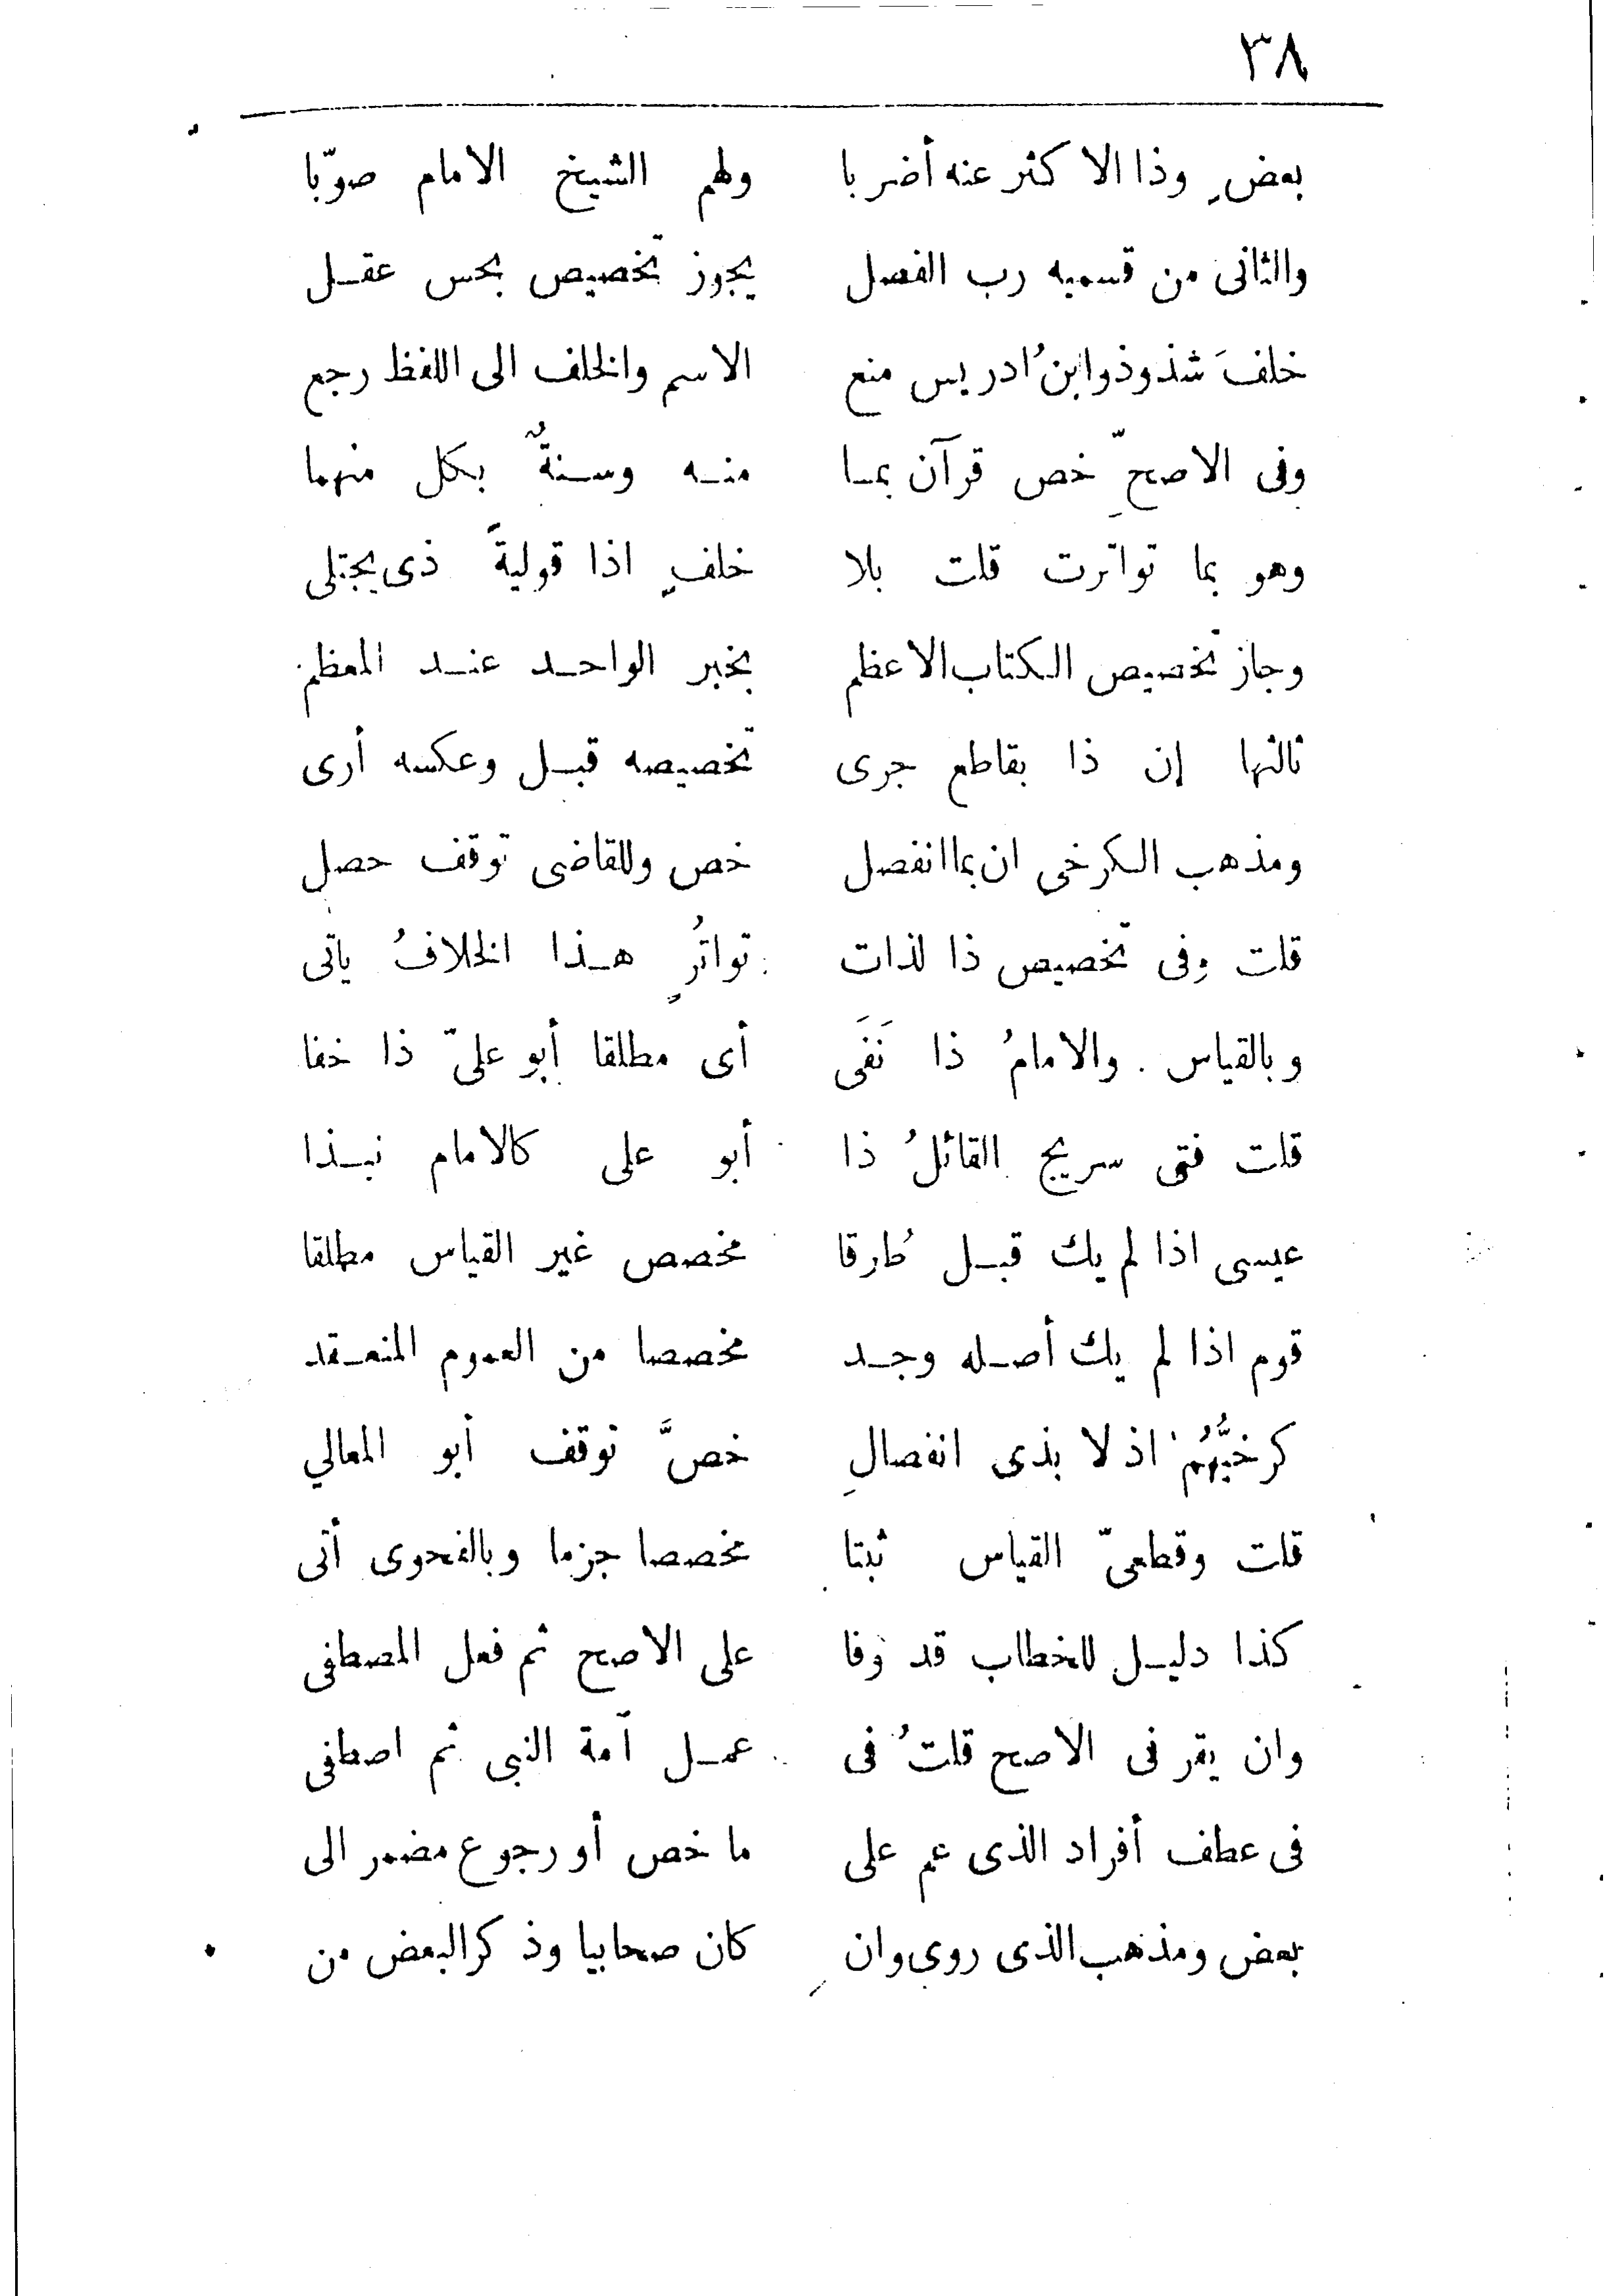 ٣٨
بعضٍ وذا الاكثر عنه أضربا ولهم الشيخ الامام صوّبا
والثانى من قسميه رب الفصل يجوز تخصيص بحس عقل
خلفَ شذوذ وابنُ ادريس منع الاسم والخلف الى اللفظ رجع
وفى الاصحِّ خص قرآن بما منه وسنةٌ بكل منهما
وهو بما تواترت قلت بلا خلفٍ اذا قوليةً ذى يجتلى
وجاز تخصيص الكتاب الاعظم بخبر الواحد عند المعظم
ثالثها إن ذا بقاطع جرى تخصيصه قبل وعكسه أرى
ومذهب الكرخى ان بما انفصل خص وللقاضى توقف حصل
قلت وفى تخصيص ذا لذات تواتُرٍ هذا الخلافُ ياتى
وبالقياس . والامامُ ذا نَفَى أى مطلقا أبو علىّ ذا خفا
قلت فتى سريج القائلُ ذا أبو على كالامام نبذا
عيسى اذا لم يك قبل طارقا مخصص غير القياس مطلقا
قوم اذا لم يك أصله وجد مخصصا من العموم المنعقد
كرخيُّهُم اذ لا بذى انفصالِ خصَّ توقف أبو المعالي
قلت وقطعىّ القياس ثبتا مخصصا جزما وبالفحوى أتى
كذا دليل للخطاب قد وفا على الاصح ثم فعل المصطفى
وان يقر فى الاصح قلتُ فى عمل أمة النبى ثم اصطفى
فى عطف أفراد الذى عم على ما خص أو رجوع مضمر الى
بعض ومذهب الذى روى وان كان صحابيا وذكر البعض من